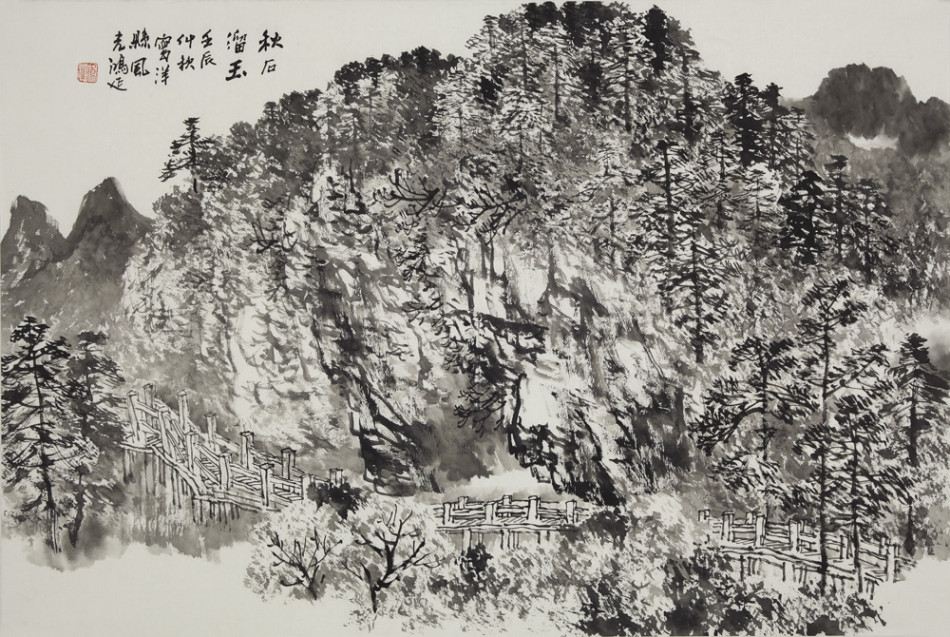 秋石
溜玉
壬辰
仲秋
寫洋
縣風
光鴻延